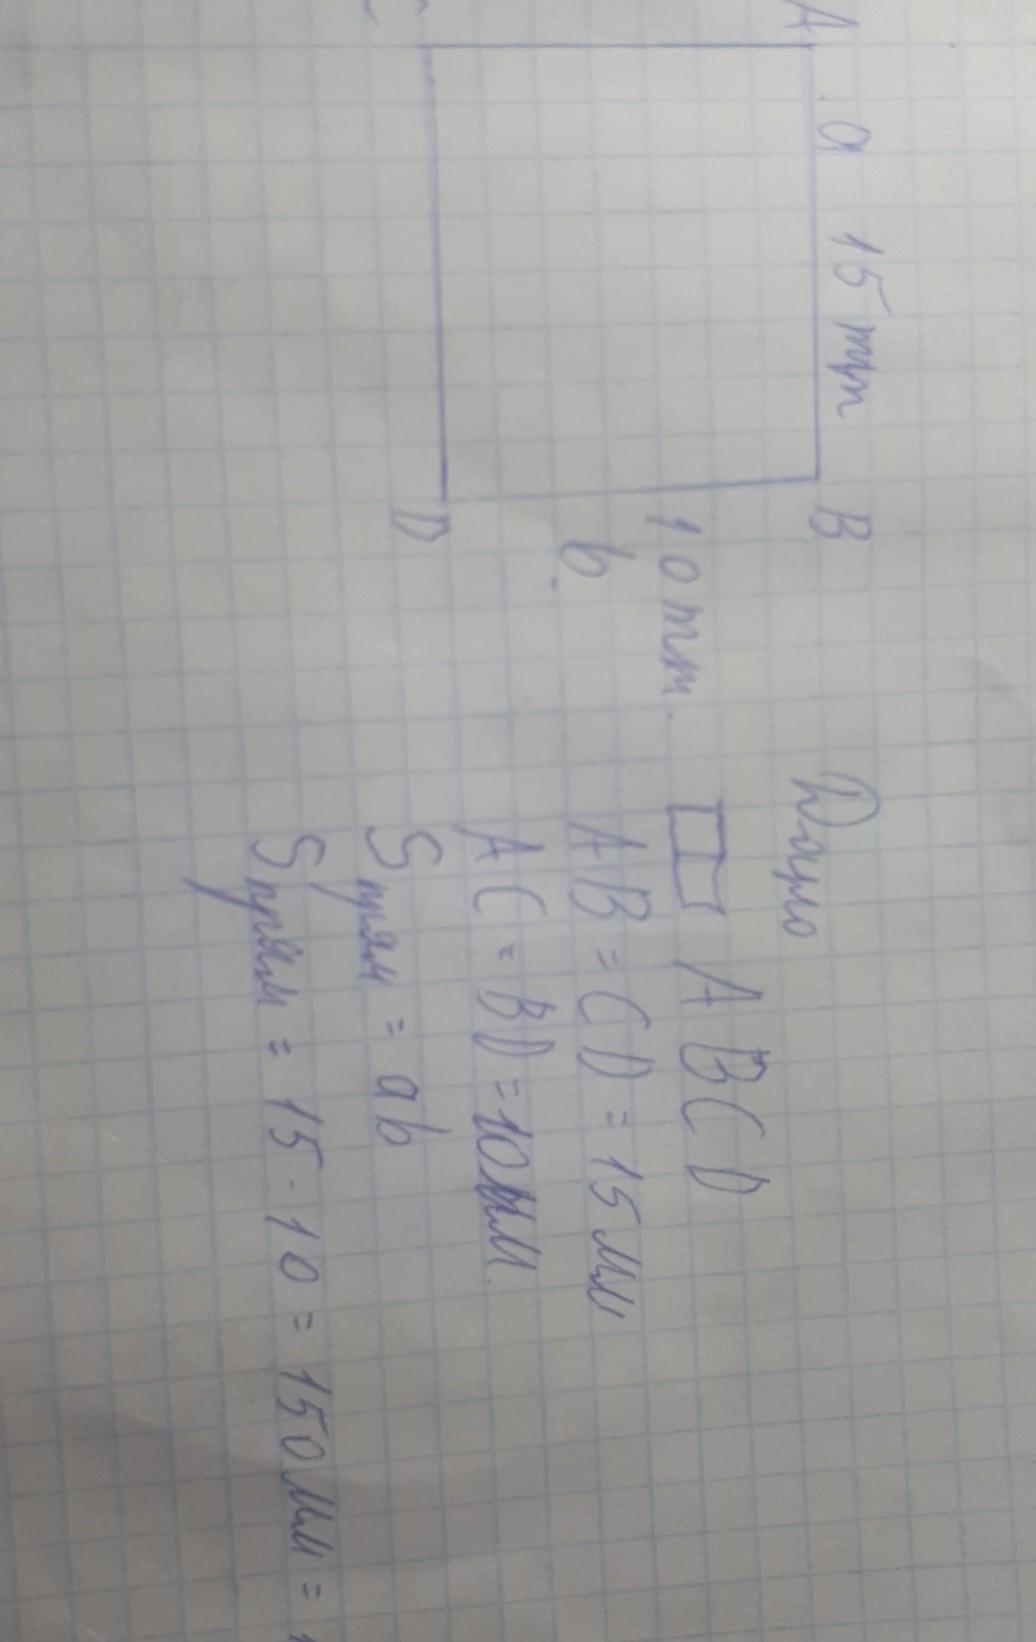 A a 15 mm B
10 mm
b
C D
Дано
▭ ABCD
AB = CD = 15 мм
AC = BD = 10 мм.
Sпрям = ab
Sпрям = 15 · 10 = 150 мм =